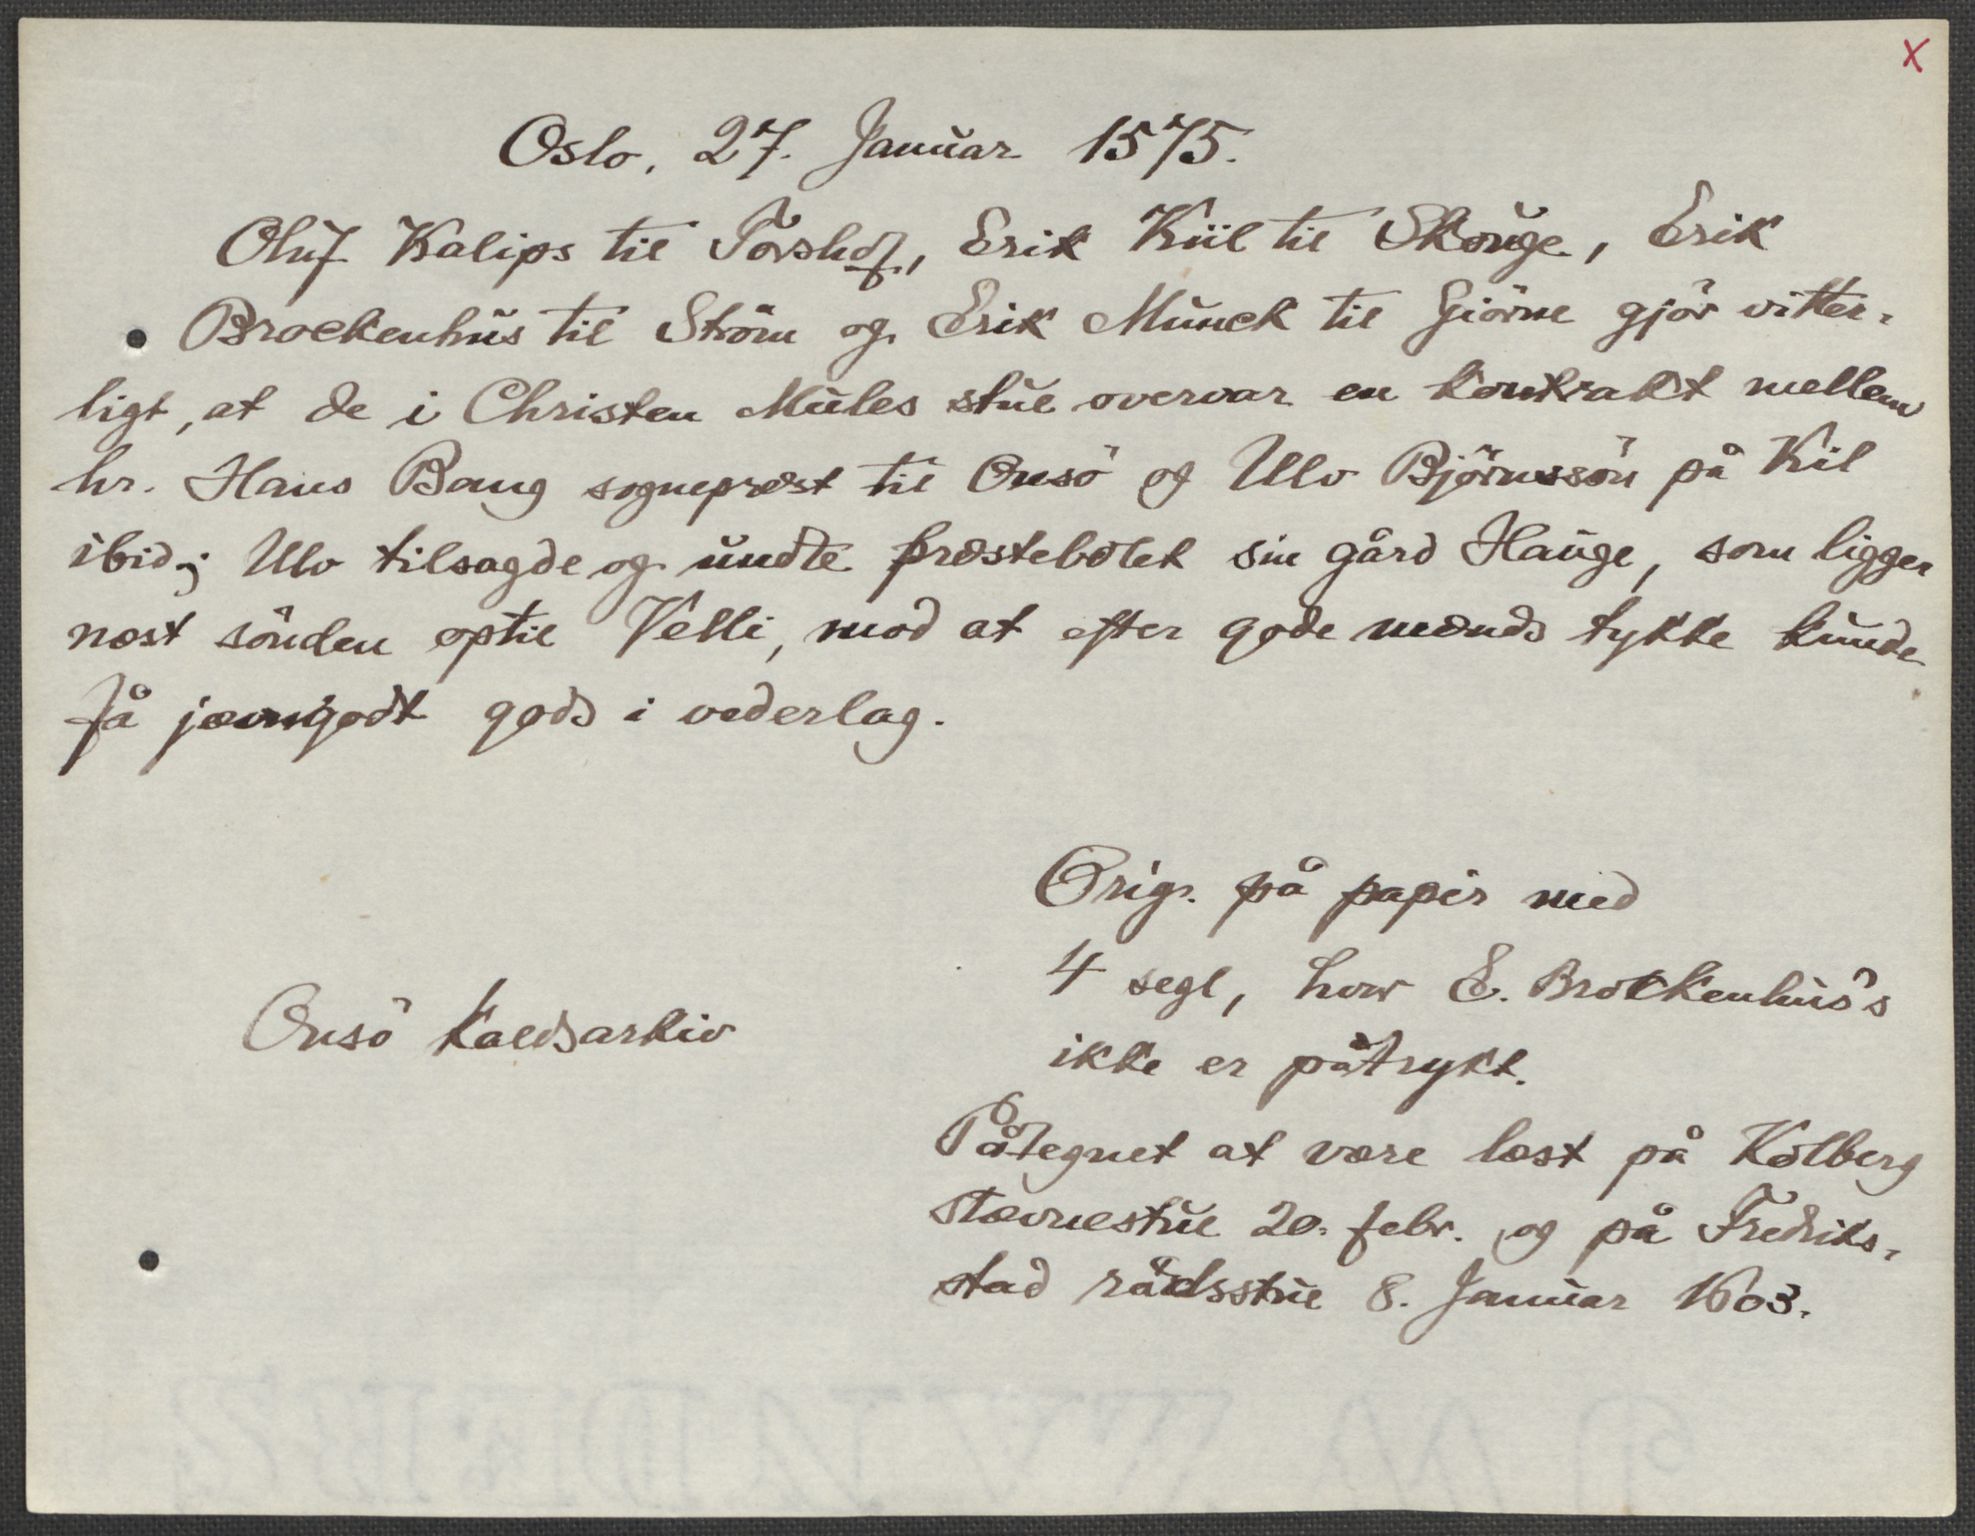 x
Oslo, 27. Januar 1575.
Oluf Kalips til Torshof, Erik Kiil til Skouge, Erik
Brockenhus til Ström og Erik Munck til Giörne gjör vitter-
ligt, at de i Christen Mules stue overvar en kontrakt mellem
hr. Hans Bang sogneprest til Onsö og Ulv Björnssön på Kil
ibid; Ulv tilsagde og undte præstebolet sin gård Hauge, som ligger
næst sönden optil Velli, mod at efter gode mænds tykke kunde
få jævngodt gods i vederlag.
Orig. på papir med
4 segl, hvor E. Brockenhus's
ikke er påtrykt.
Onsö kaldsarkiv
Påtegnet at være læst på Kolberg
stævnestue 20. febr. og på Fredriks-
stad rådsstue 8. Januar 1603.